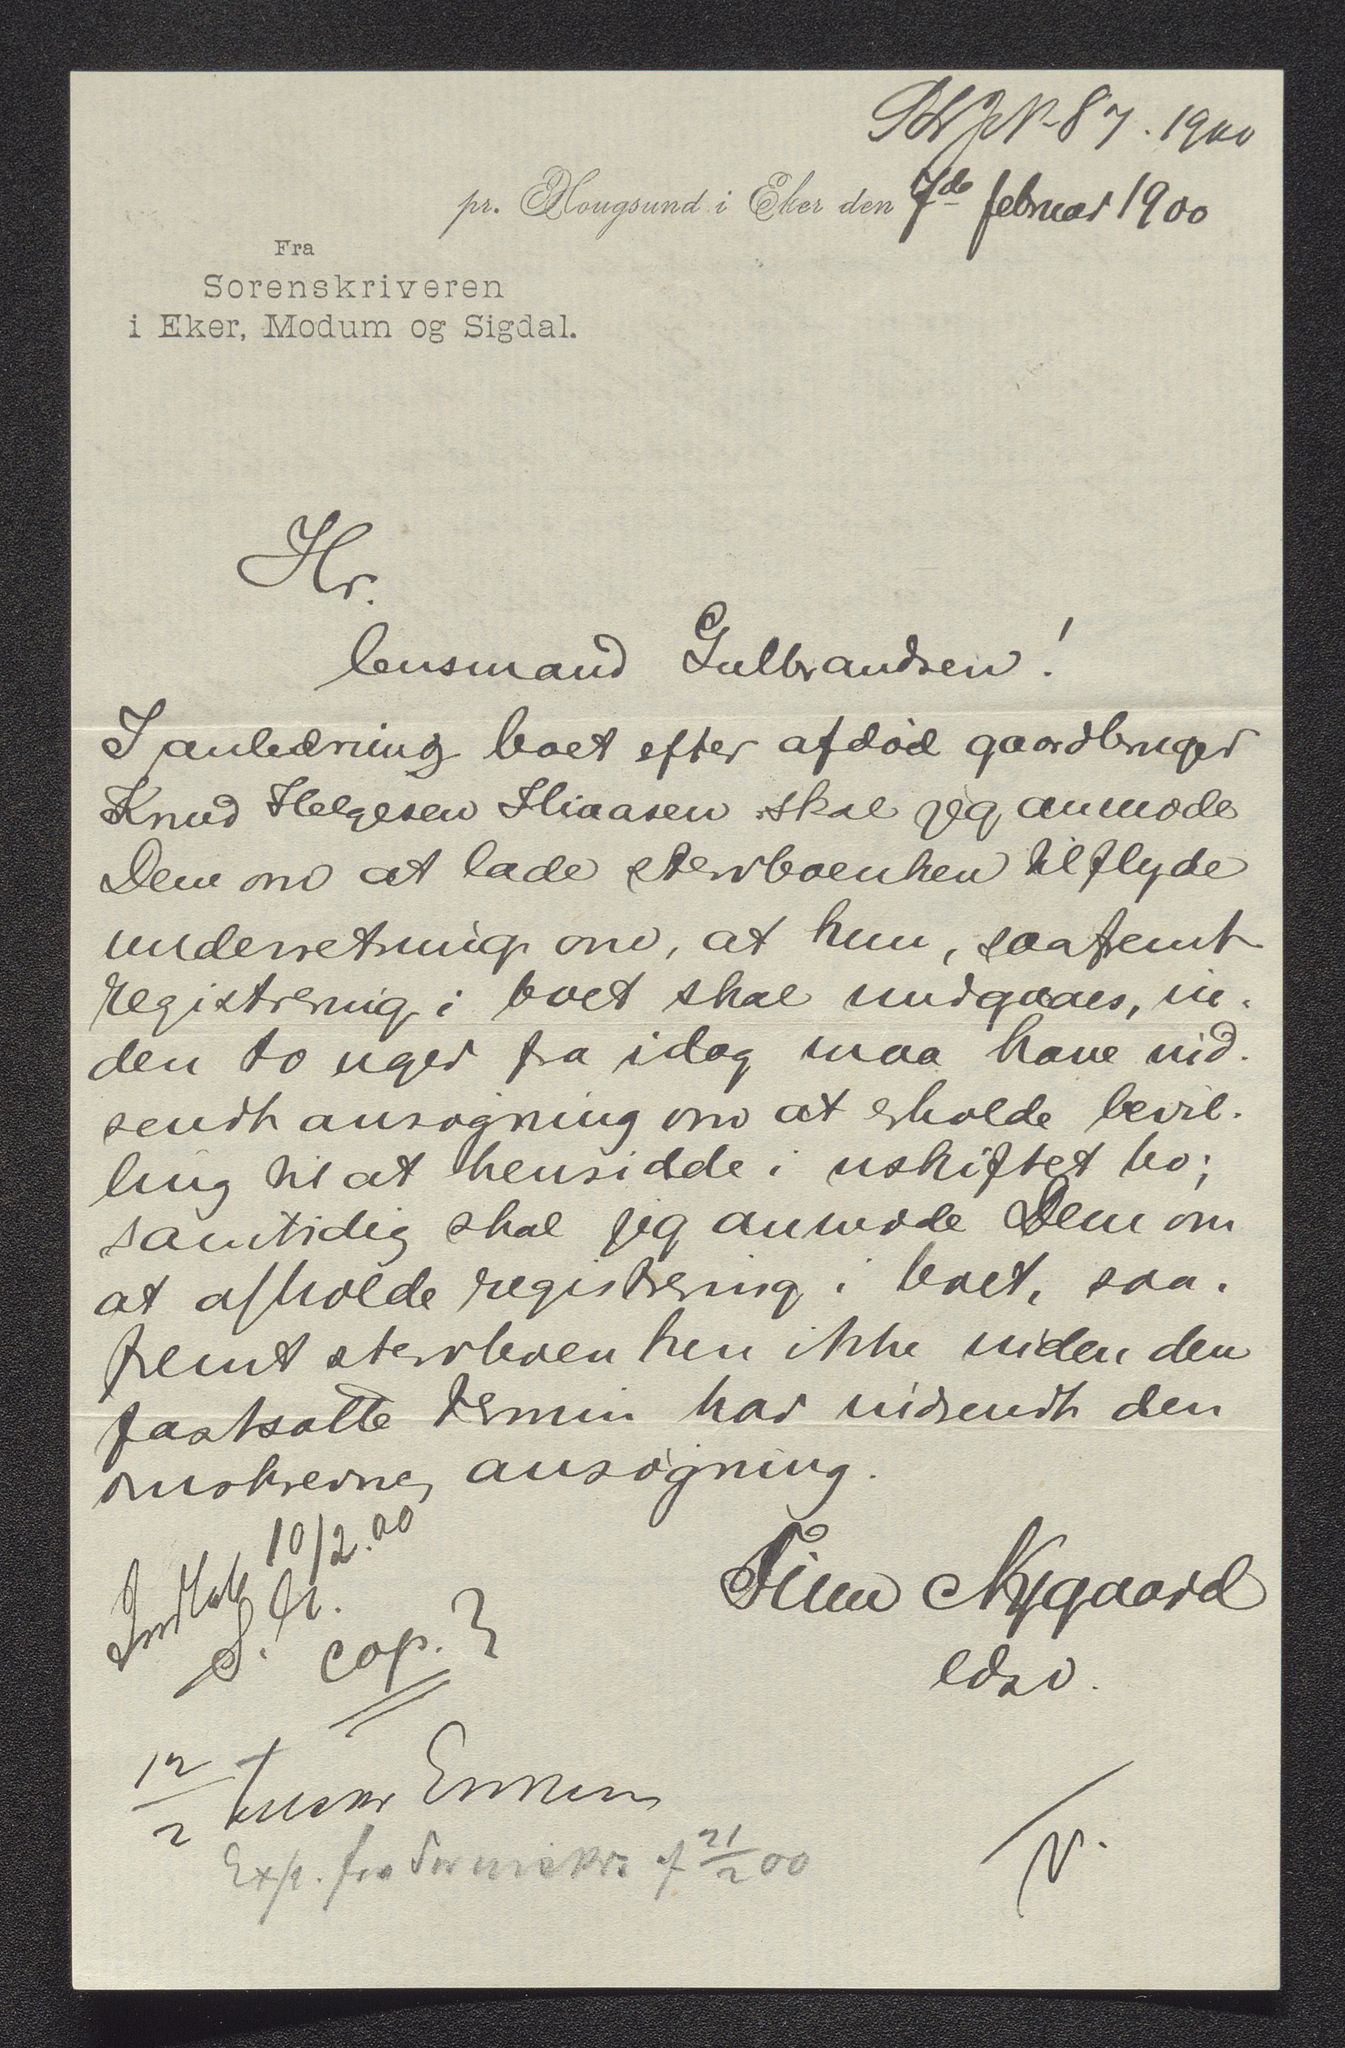 JN-87. 1900
pr. Hougsund i Eker den 7de februar 1900
Fra
Sorenskriveren
i Eker, Modum og Sigdal.
Hr.
lensmand Gulbrandsen!
I anledning boet efter afdød gaardbruger
Knud Helgesen Hiaasen skal jeg anmode
Dem om at lade stervboenken tilflyde
underretning om, at hun, saafremt
registrering i boet skal undgaaes, in-
den to uger fra idag maa have ind-
sendt ansøgning om at erholde bevil-
ling til at hensidde i uskiftet bo;
samtidig skal jeg anmode Dem om
at afholde registrering i boet, saa-
fremt stervboenken ikke inden den
fastsatte termin har indsendt den
omskrevne ansøgning.
10/2.00
cop.
Finn Nygaard
edsv.
12/2
Exp. fra Sorenskr. af 21/2 00